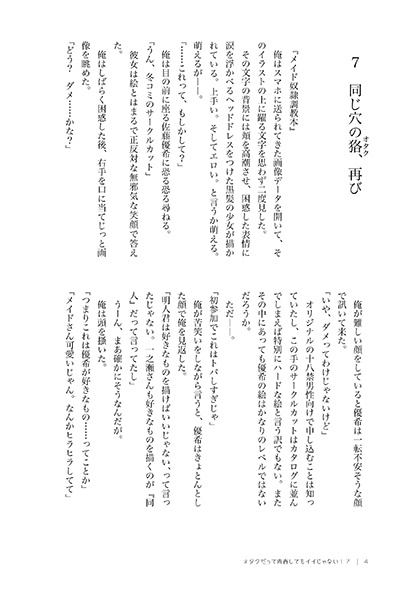 7 同じ穴の狢、再び
オタク
『メイド奴隷調教本』
俺はスマホに送られてきた画像データを開いて、そ
のイラストの上に躍る文字を思わず二度見した。
その文字の背景には頬を高潮させ、困惑した表情に
涙を浮かべるヘッドドレスをつけた黒髪の少女が描か
れている。上手い。そしてエロい。と言うか萌える。
萌えるが――。
「……これって、もしかして？」
俺は目の前に座る佐藤優希に恐る恐る尋ねる。
「うん、冬コミのサークルカット」
彼女は絵とはまるで正反対な無邪気な笑顔で答え
た。
俺はしばらく困惑した後、右手を口に当てじっと画
像を眺めた。
「どう？ ダメ……かな？」
俺が難しい顔をしていると優希は一転不安そうな顔
で訊いて来た。
「いや、ダメってわけじゃないけど」
オリジナルの十八禁男性向けで申し込むことは知っ
ていたし、この手のサークルカットはカタログに並ん
でしまえば特別にハードな絵と言う訳でもない。また
その中にあっても優希の絵はかなりのレベルではない
だろうか。
ただ――。
「初参加でこれはトバしすぎじゃ」
俺が苦笑いをしながら言うと、優希はきょとんとし
た顔で俺を見返した。
「明人君は好きなものを描けばいいじゃない、って言っ
たじゃない。一之瀬さんも好きなものを描くのが『同
人』だって言ってたし」
うーん、まあ確かにそうなんだが。
俺は頭を掻いた。
「つまりこれは優希が好きなもの……ってことか」
「メイドさん可愛いじゃん。なんかヒラヒラしてて」
オタクだって青春してもイイじゃない！7 | 4